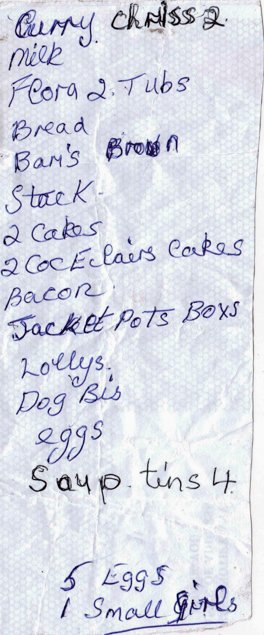 Curry. Chriss 2.
Milk
Flora 2. Tubs
Bread
Bam's Brown
Stack
2 Cakes
2 Coc Eclairs Cakes
Bacon.
Jacket Pots Boxs
Lollys.
Dog Bis
eggs
Soup. tins 4.
5 Eggs
1 Small